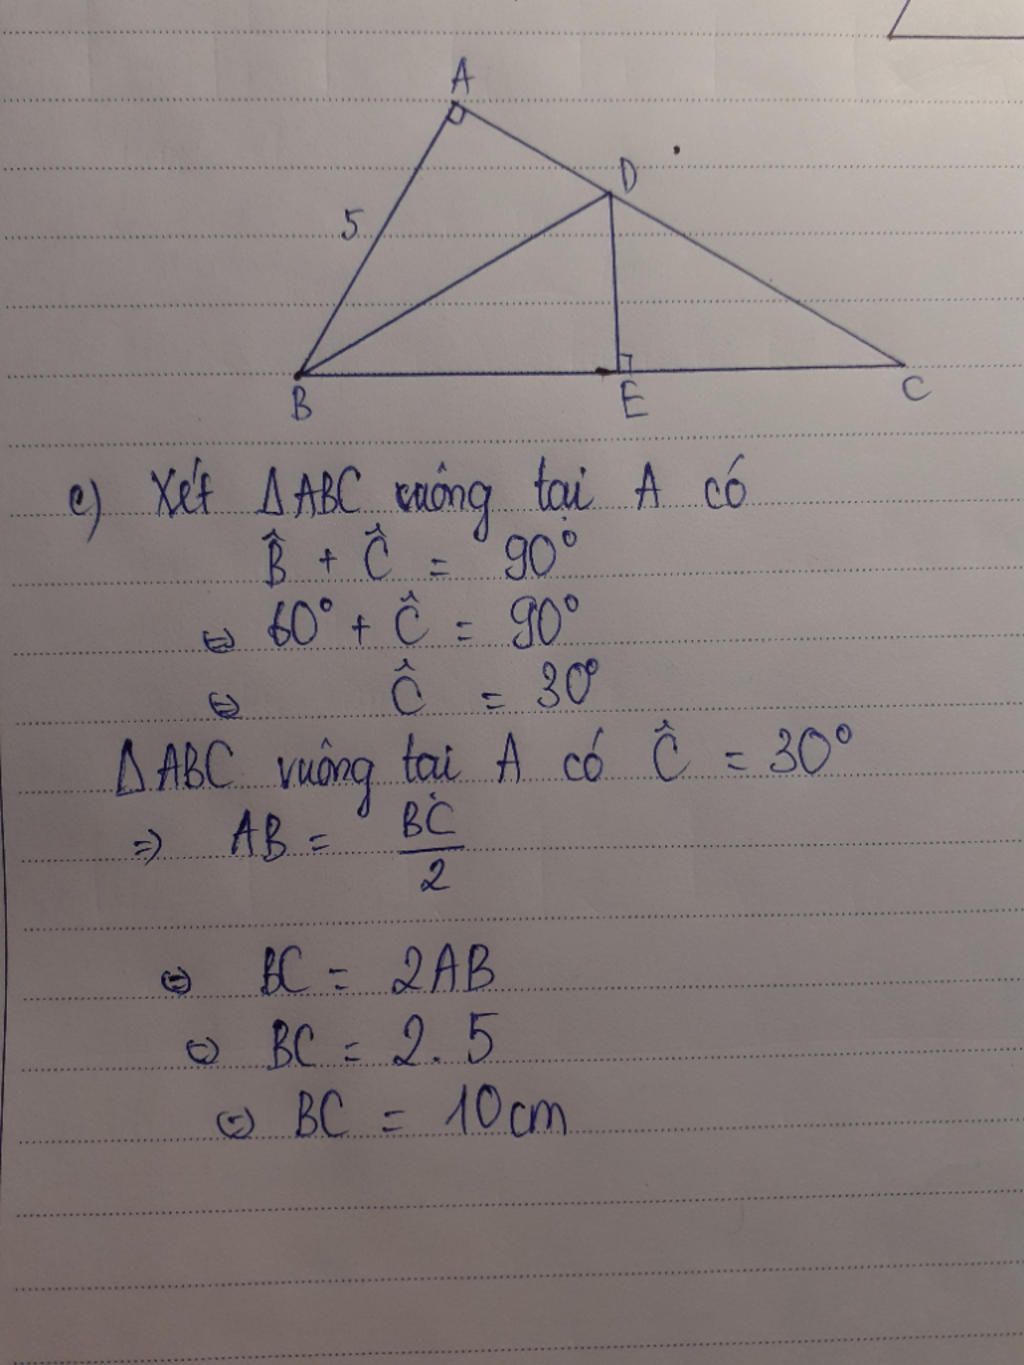 A
D
5
B
E
C
c) Xét ΔABC vuông tại A có
B̂ + Ĉ = 90°
⇔ 60° + Ĉ = 90°
⇔ Ĉ = 30°
ΔABC vuông tại A có Ĉ = 30°
⇒ AB = BC/2
⇔ BC = 2AB
⇔ BC = 2.5
⇔ BC = 10cm